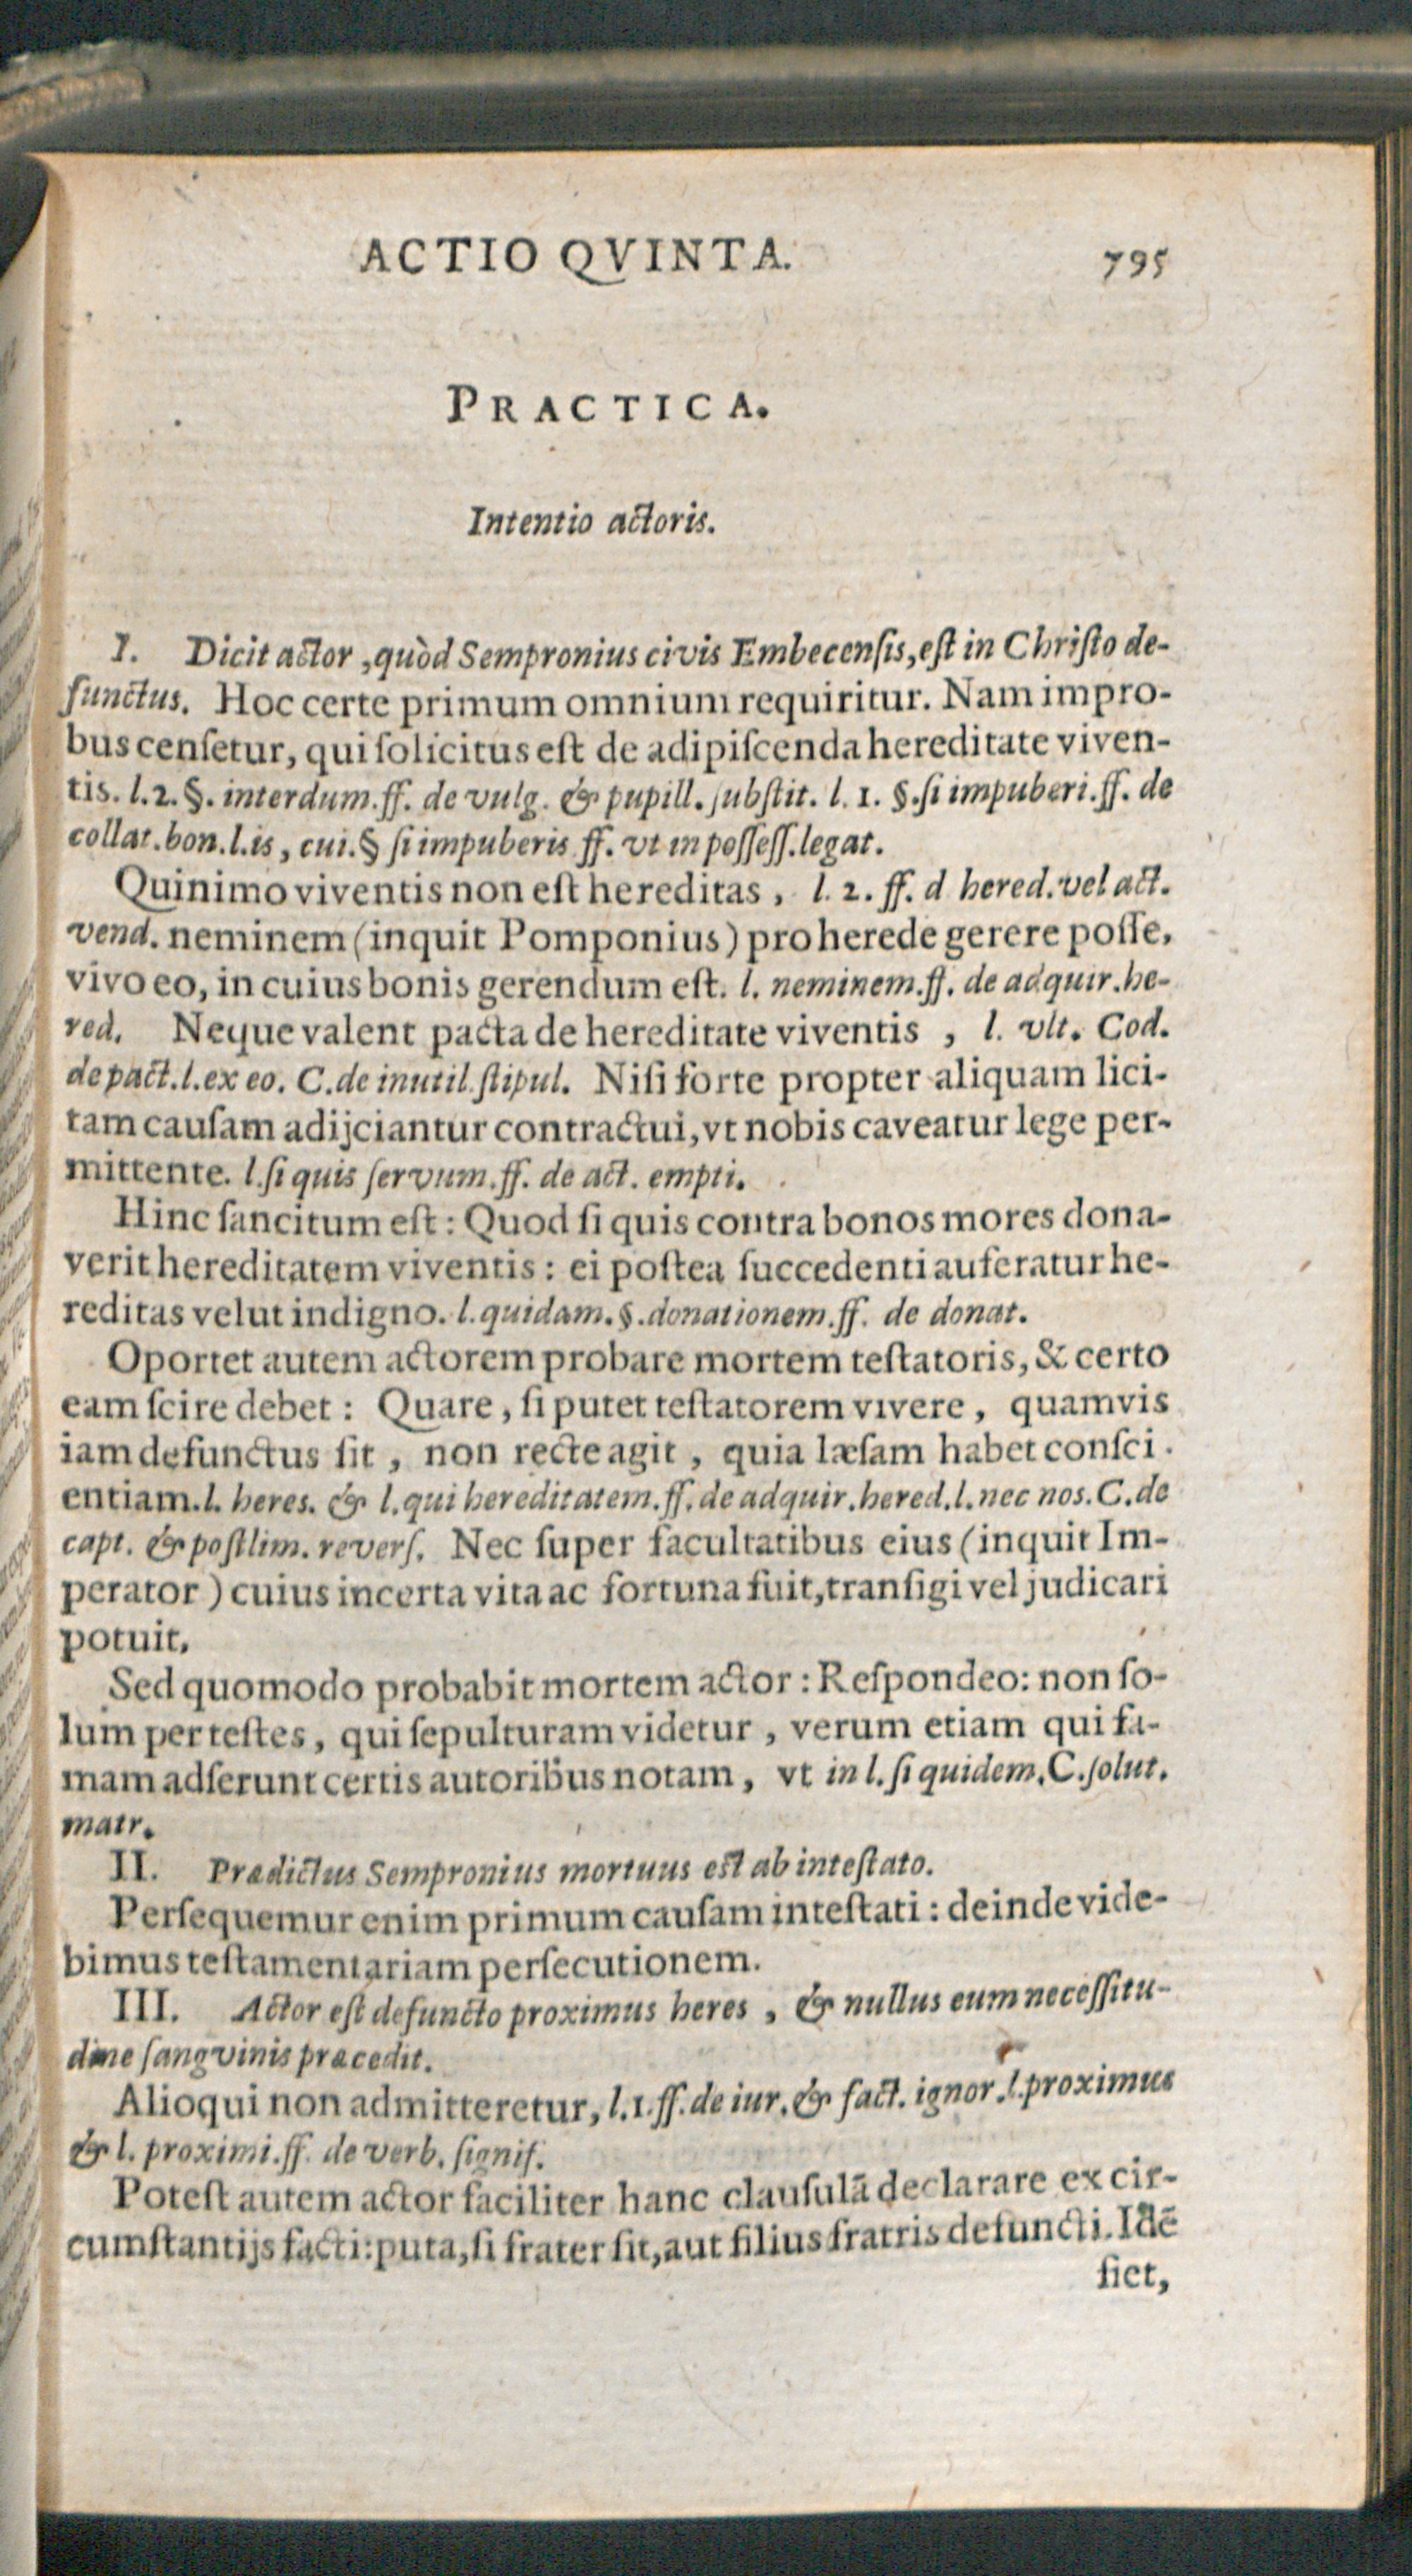 ACTIO QVINTA. 795
PRACTICA.
Intentio actoris.
I. Dicit actor, quòd Sempronius civis Embecenſis, eſt in Chriſto de-
functus. Hoc certe primum omnium requiritur. Nam impro-
bus cenſetur, qui ſolicitus eſt de adipiſcenda hereditate viven-
tis. l. 2. §. interdum. ff. de vulg. & pupill. ſubſtit. l. 1. §. ſi impuberi. ff. de
collat. bon. l. is, cui. § ſi impuberis ff. vt in poſſeſſ. legat.
Quinimo viventis non eſt hereditas, l. 2. ff. d hered. vel act.
vend. neminem (inquit Pomponius) pro herede gerere poſſe,
vivo eo, in cuius bonis gerendum eſt. l. neminem. ff. de adquir. he-
red. Neque valent pacta de hereditate viventis, l. vlt. Cod.
de pact. l. ex eo. C. de inutil. ſtipul. Niſi forte propter aliquam lici-
tam cauſam adijciantur contractui, vt nobis caveatur lege per-
mittente. l. ſi quis ſervum. ff. de act. empti.
Hinc ſancitum eſt: Quod ſi quis contra bonos mores dona-
verit hereditatem viventis: ei poſtea ſuccedenti auferatur he-
reditas velut indigno. l. quidam. §. donationem. ff. de donat.
Oportet autem actorem probare mortem teſtatoris, & certo
eam ſcire debet: Quare, ſi putet teſtatorem vivere, quamvis
iam defunctus ſit, non recte agit, quia læſam habet conſci-
entiam. l. heres. & l. qui hereditatem. ff. de adquir. hered. l. nec nos. C. de
capt. & poſtlim. reverſ. Nec ſuper facultatibus eius (inquit Im-
perator) cuius incerta vita ac fortuna fuit, tranſigi vel judicari
potuit.
Sed quomodo probabit mortem actor: Reſpondeo: non ſo-
lum per teſtes, qui ſepulturam videtur, verum etiam qui fa-
mam adſerunt certis autoribus notam, vt in l. ſi quidem. C. ſolut.
matr.
II. Prædictus Sempronius mortuus eſt ab inteſtato.
Perſequemur enim primum cauſam inteſtati: deinde vide-
bimus teſtamentariam perſecutionem.
III. Actor eſt defuncto proximus heres, & nullus eum neceſſitu-
dine ſangvinis præcedit.
Alioqui non admitteretur, l. 1. ff. de iur. & fact. ignor. l. proximus
& l. proximi. ff. de verb. ſignif.
Poteſt autem actor faciliter hanc clauſulā declarare ex cir-
cumſtantijs facti: puta, ſi frater ſit, aut filius fratris defuncti. Idē
fiet,